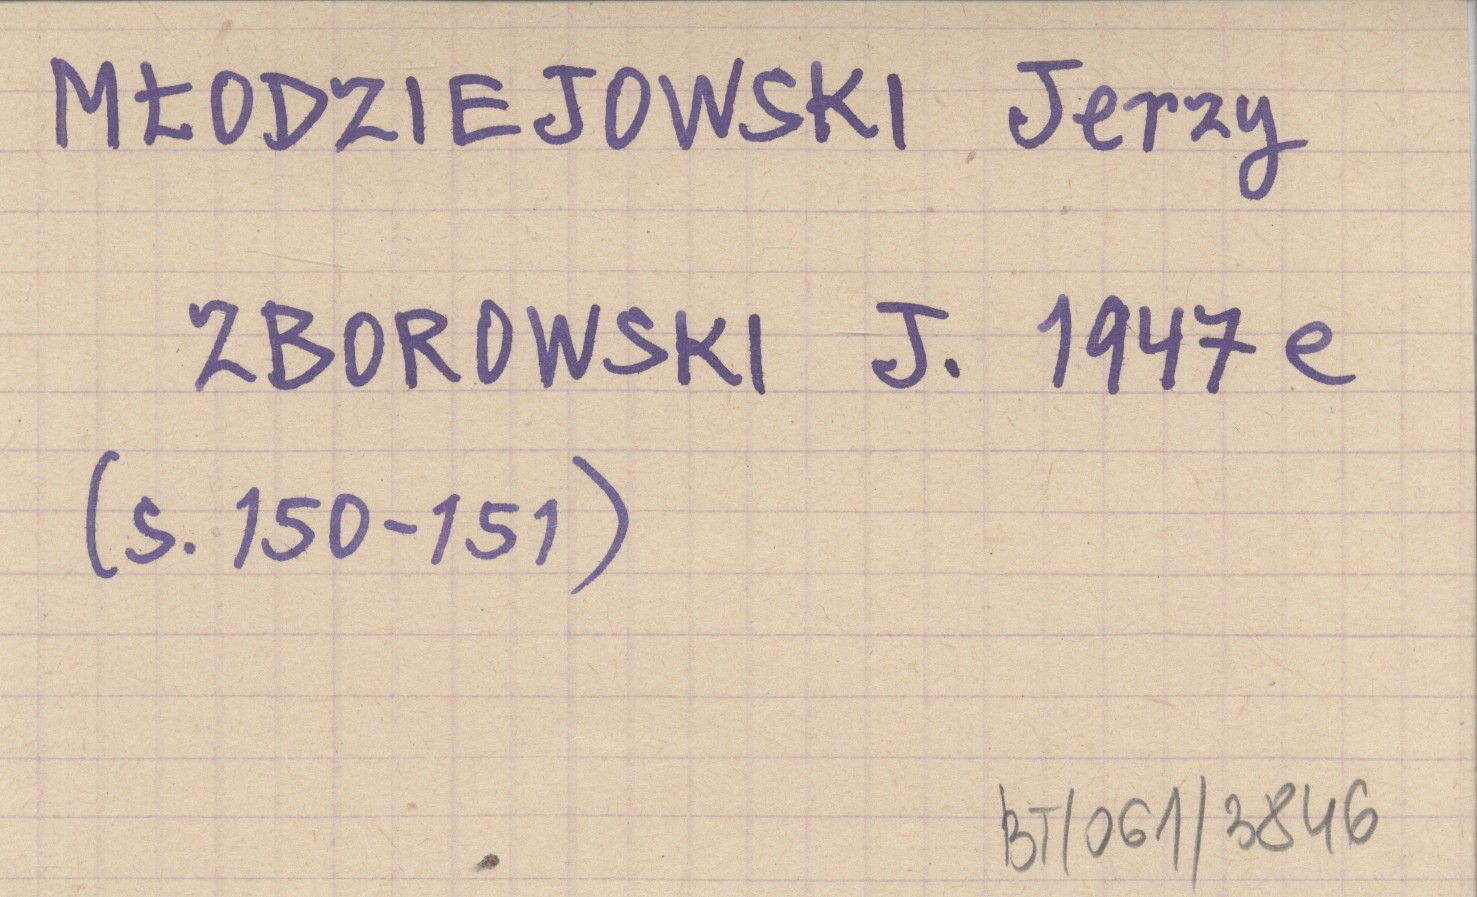 MŁODZIEJOWSKI Jerzy
ZBOROWSKI J. 1947 e
(s. 150-151)
BT/061/3846